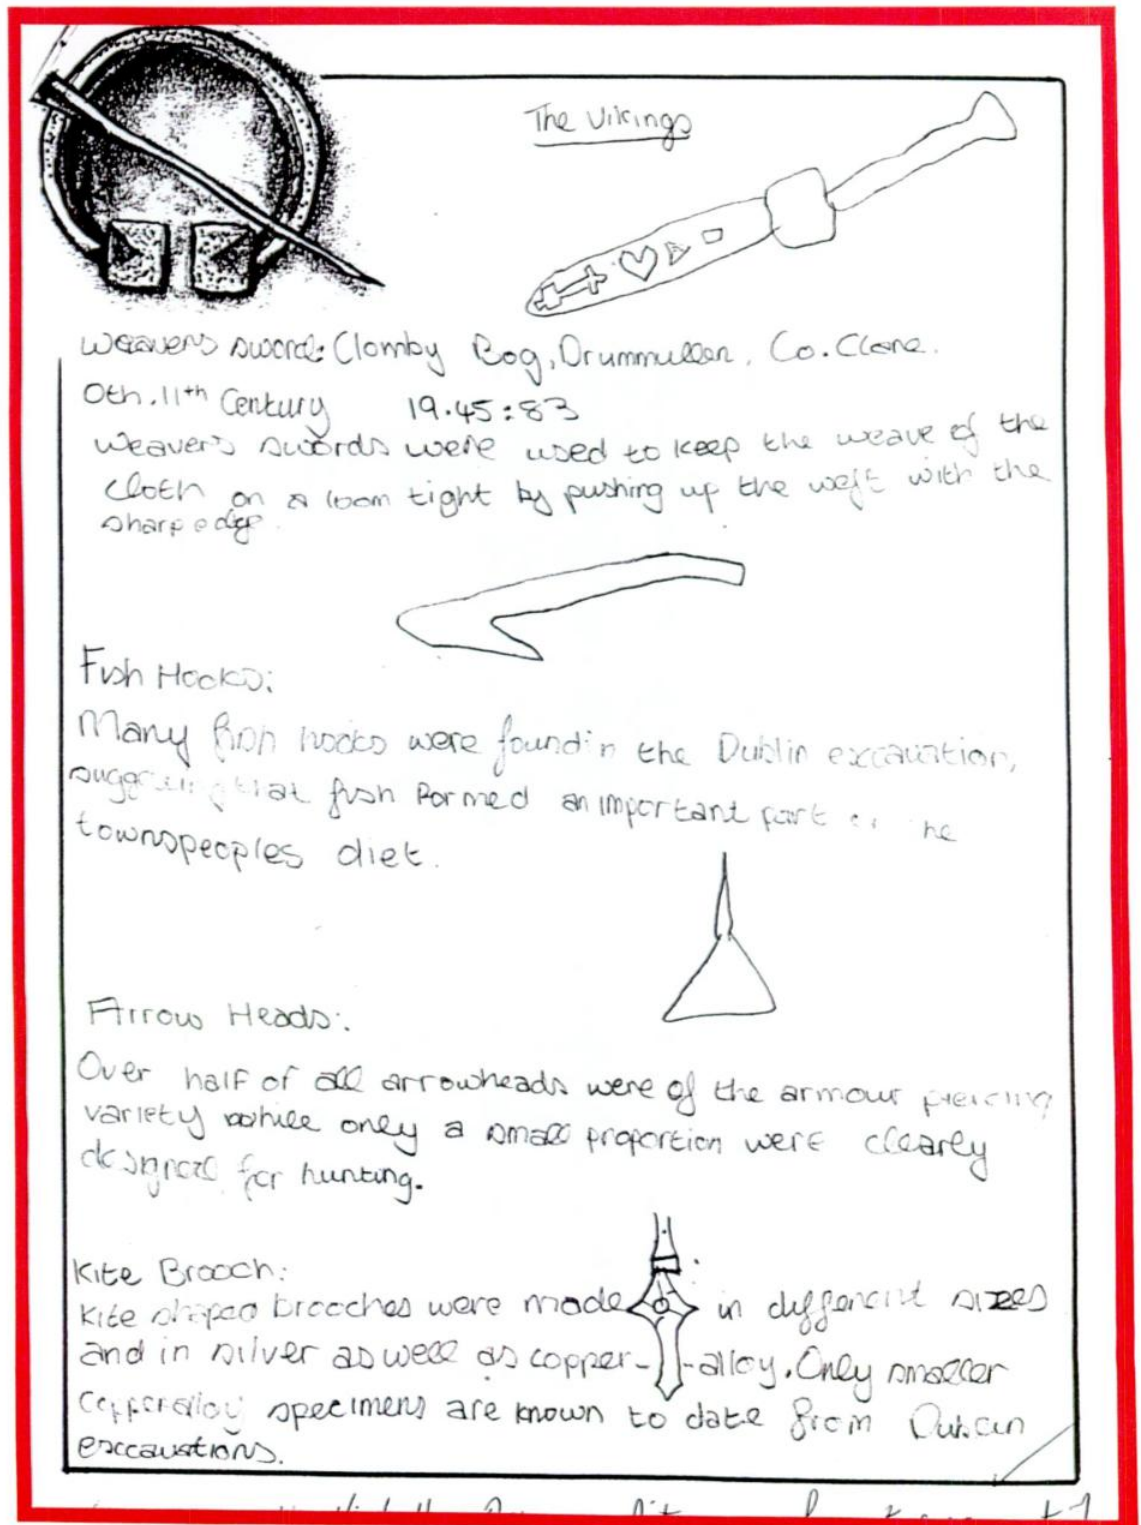 The Vikings
Weavers sword: Clomby Bog, Drummullen, Co. Clare.
0th.11th Century 19.45:83
Weavers swords were used to keep the weave of the
cloth on a loom tight by pushing up the weft with the
sharp edge.
Fish Hooks:
Many fish hooks were found in the Dublin excavation,
suggesting that fish formed an important part of the
townspeoples diet.
Arrow Heads:
Over half of all arrowheads were of the armour piercing
variety while only a small proportion were clearly
designed for hunting.
Kite Brooch:
Kite shaped brooches were made in different sizes
and in silver as well as copper-alloy. Only smaller
copperalloy specimens are known to date from Dublin
excavations.